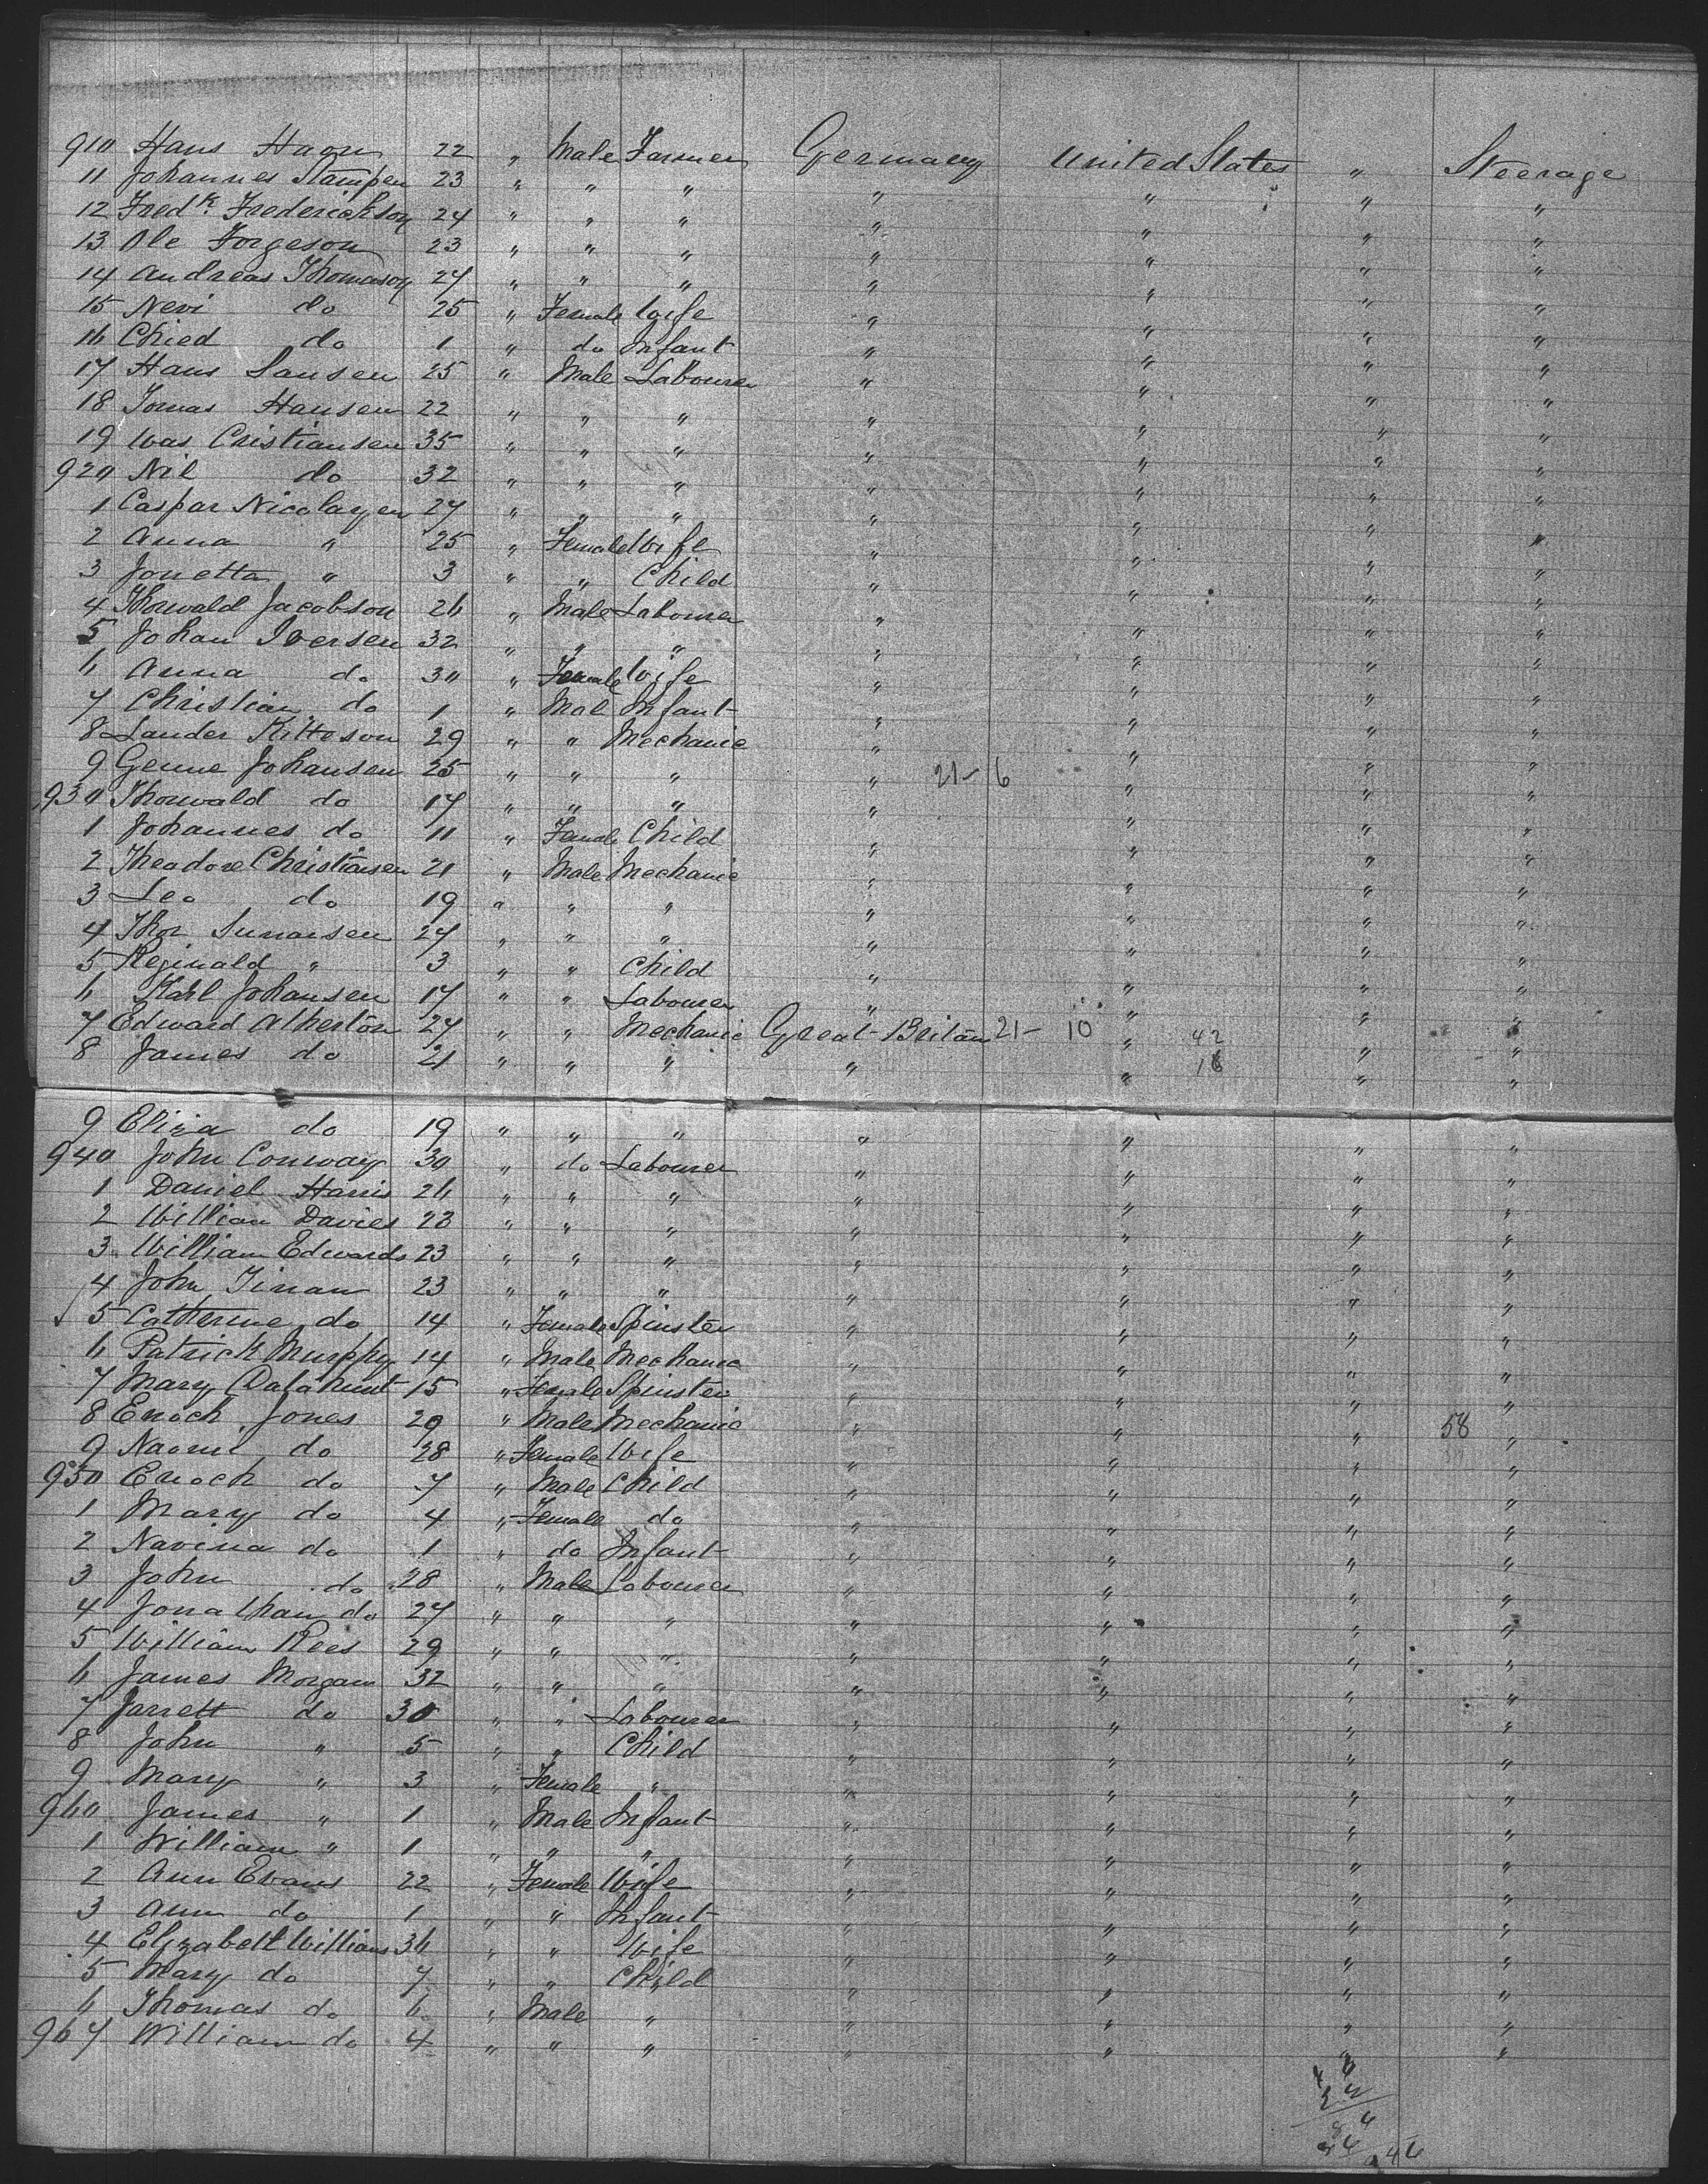 910 Hans Hagn 22 " Male Farmer Germany United States " Steerage
11 Johannes Stampen 23 " " " " " " "
12 Fredk. Frederickson 24 " " " " " " "
13 Ole Forgeson 23 " " " " " " "
14 Andreas Thomason 27 " " " " " " "
15 Nevi do 25 " Female Wife " " " "
16 Chied do 1 " do Infant " " " "
17 Hans Lansen 25 " Male Labourer " " " "
18 Tomas Hansen 22 " " " " " " "
19 Was Cristiansen 35 " " " " " " "
920 Nil do 32 " " " " " " "
1 Caspar Nicolayen 27 " " " " " " "
2 Anna " 25 " Female Wife " " " "
3 Jonetta " 3 " " Child " " " "
4 Thorwald Jacobson 26 " Male Labourer " " " "
5 Johan Iversen 32 " " " " " " "
6 Anna do 30 " Female Wife " " " "
7 Christian do 1 " Male Infant " " " "
8 Lauder Kitteson 29 " " Mechanic " " " "
9 Genne Johansen 25 " " " " 21-6 " " "
930 Thorwald do 17 " " " " " " "
1 Johannes do 11 " Female Child " " " "
2 Theodore Christiansen 21 " Male Mechanic " " " "
3 Leo do 19 " " " " " " "
4 Thor Sunarsen 27 " " " " " " "
5 Reginald " 3 " " Child " " " "
6 Karl Johansen 17 " " Labourer " " " "
7 Edward Atherton 27 " " Mechanic Great Britain 21-10 " 42 " "
8 James do 21 " " " " " 16 " "
9 Eliza do 19 " " " " " " "
940 John Conway 30 " do Labourer " " " "
1 Daniel Harris 26 " " " " " " "
2 William Davies 23 " " " " " " "
3 William Edwards 23 " " " " " " "
4 John Tinan 23 " " " " " " "
5 Catherine do 14 " Female Spinster " " " "
6 Patrick Murphy 14 " Male Mechanic " " " "
7 Mary 15 " Female Spinster " " " "
8 Enoch Jones 29 " Male Mechanic " " " 58 "
9 Naomi do 28 " Female Wife " " " "
950 Enoch do 7 " Male Child " " " "
1 Mary do 4 " Female do " " " "
2 Navina do 1 " do Infant " " " "
3 John do 28 " Male Labourer " " " "
4 Jonathan do 27 " " " " " " "
5 William Rees 29 " " " " " " "
6 James Morgan 32 " " " " " " "
7 Jarrett do 30 " " Labourer " " " "
8 John " 5 " " Child " " " "
9 Mary " 3 " Female " " " " "
960 James " 1 " Male Infant " " " "
1 William " 1 " " " " " " "
2 Ann Evans 22 " Female Wife " " " "
3 Ann do 1 " " Infant " " " "
4 Elizabett Williams 36 " " Wife " " " "
5 Mary do 7 " " Child " " " "
6 Thomas do 6 " Male " " " " "
967 William do 4 " " " " " " "